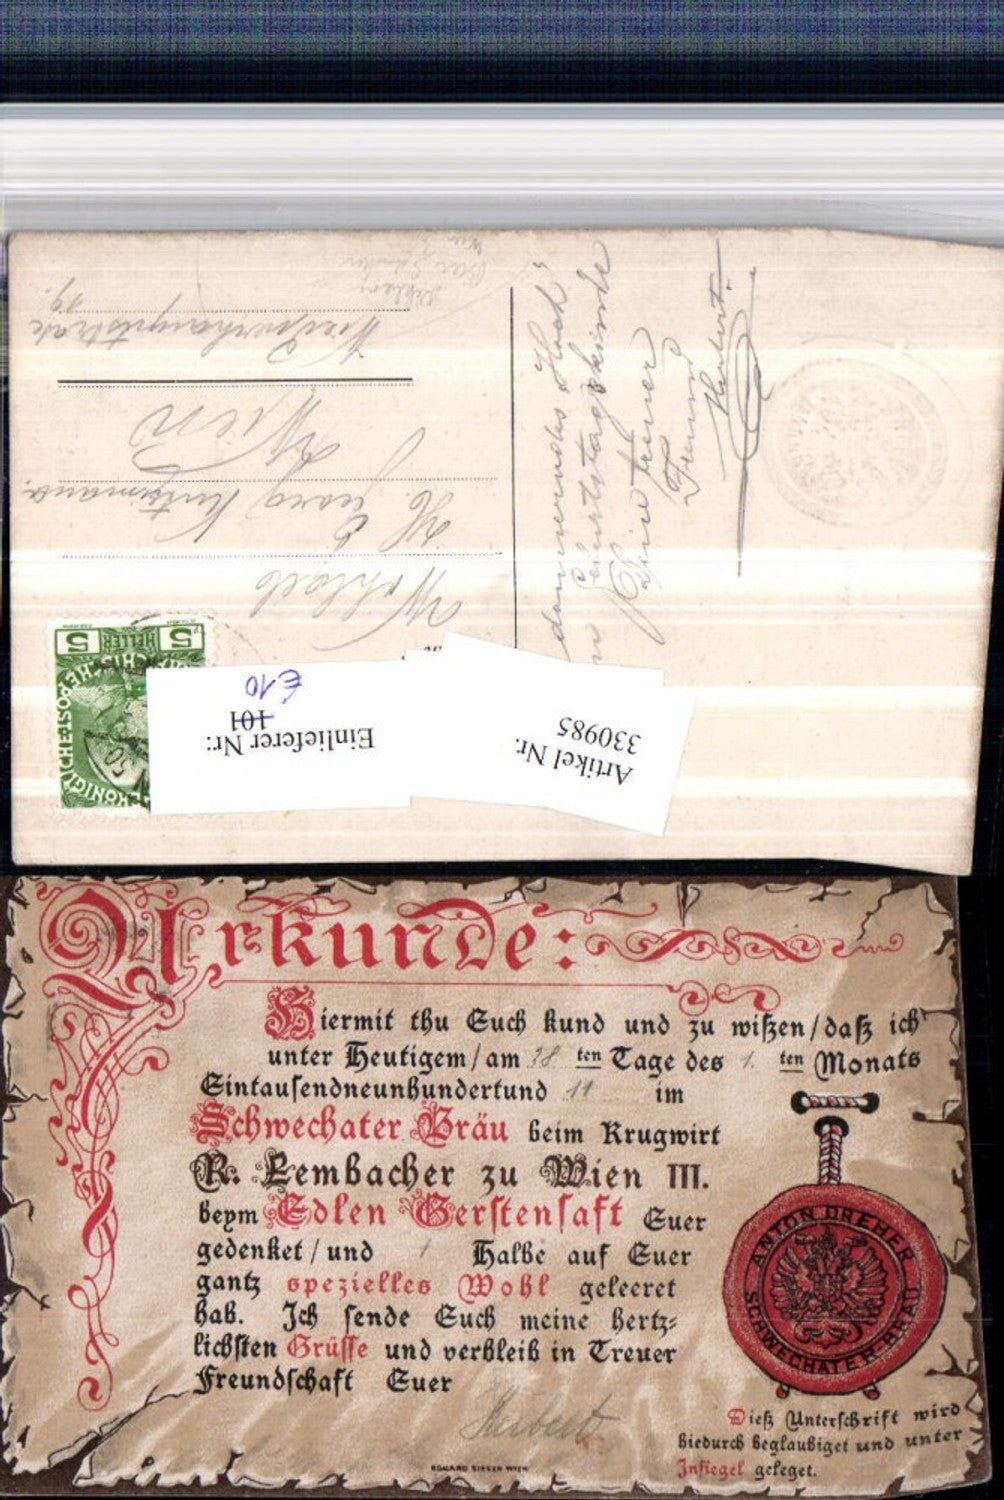 Wien
Wohlgeb
H. Georg
Wien
5 HELLER 5
Einlieferer Nr:
101
€10
Artikel Nr.
330985
donnerndes Hoch!
Deine treuer
Freund
Herbert.
Urkunde:
Hiermit thu Euch kund und zu wißen/daß ich
unter Heutigem/am 18 ten Tage des 1. ten Monats
Eintausendneunhundertund 11 im
Schwechater Bräu beim Krugwirt
R. Lembacher zu Wien III.
beym Edlen Gerstensaft Euer
gedenket/und 1 Halbe auf Euer
gantz spezielles Wohl geleeret
hab. Ich sende Euch meine hertz=
lichsten Grüsse und verbleib in Treuer
Freundschaft Euer
Herbert
ANTON DREHER
SCHWECHATER-BRÄU
Dieß Unterschrift wird
hiedurch beglaubiget und unter
Insiegel geleget.
EDUARD SIEGER WIEN